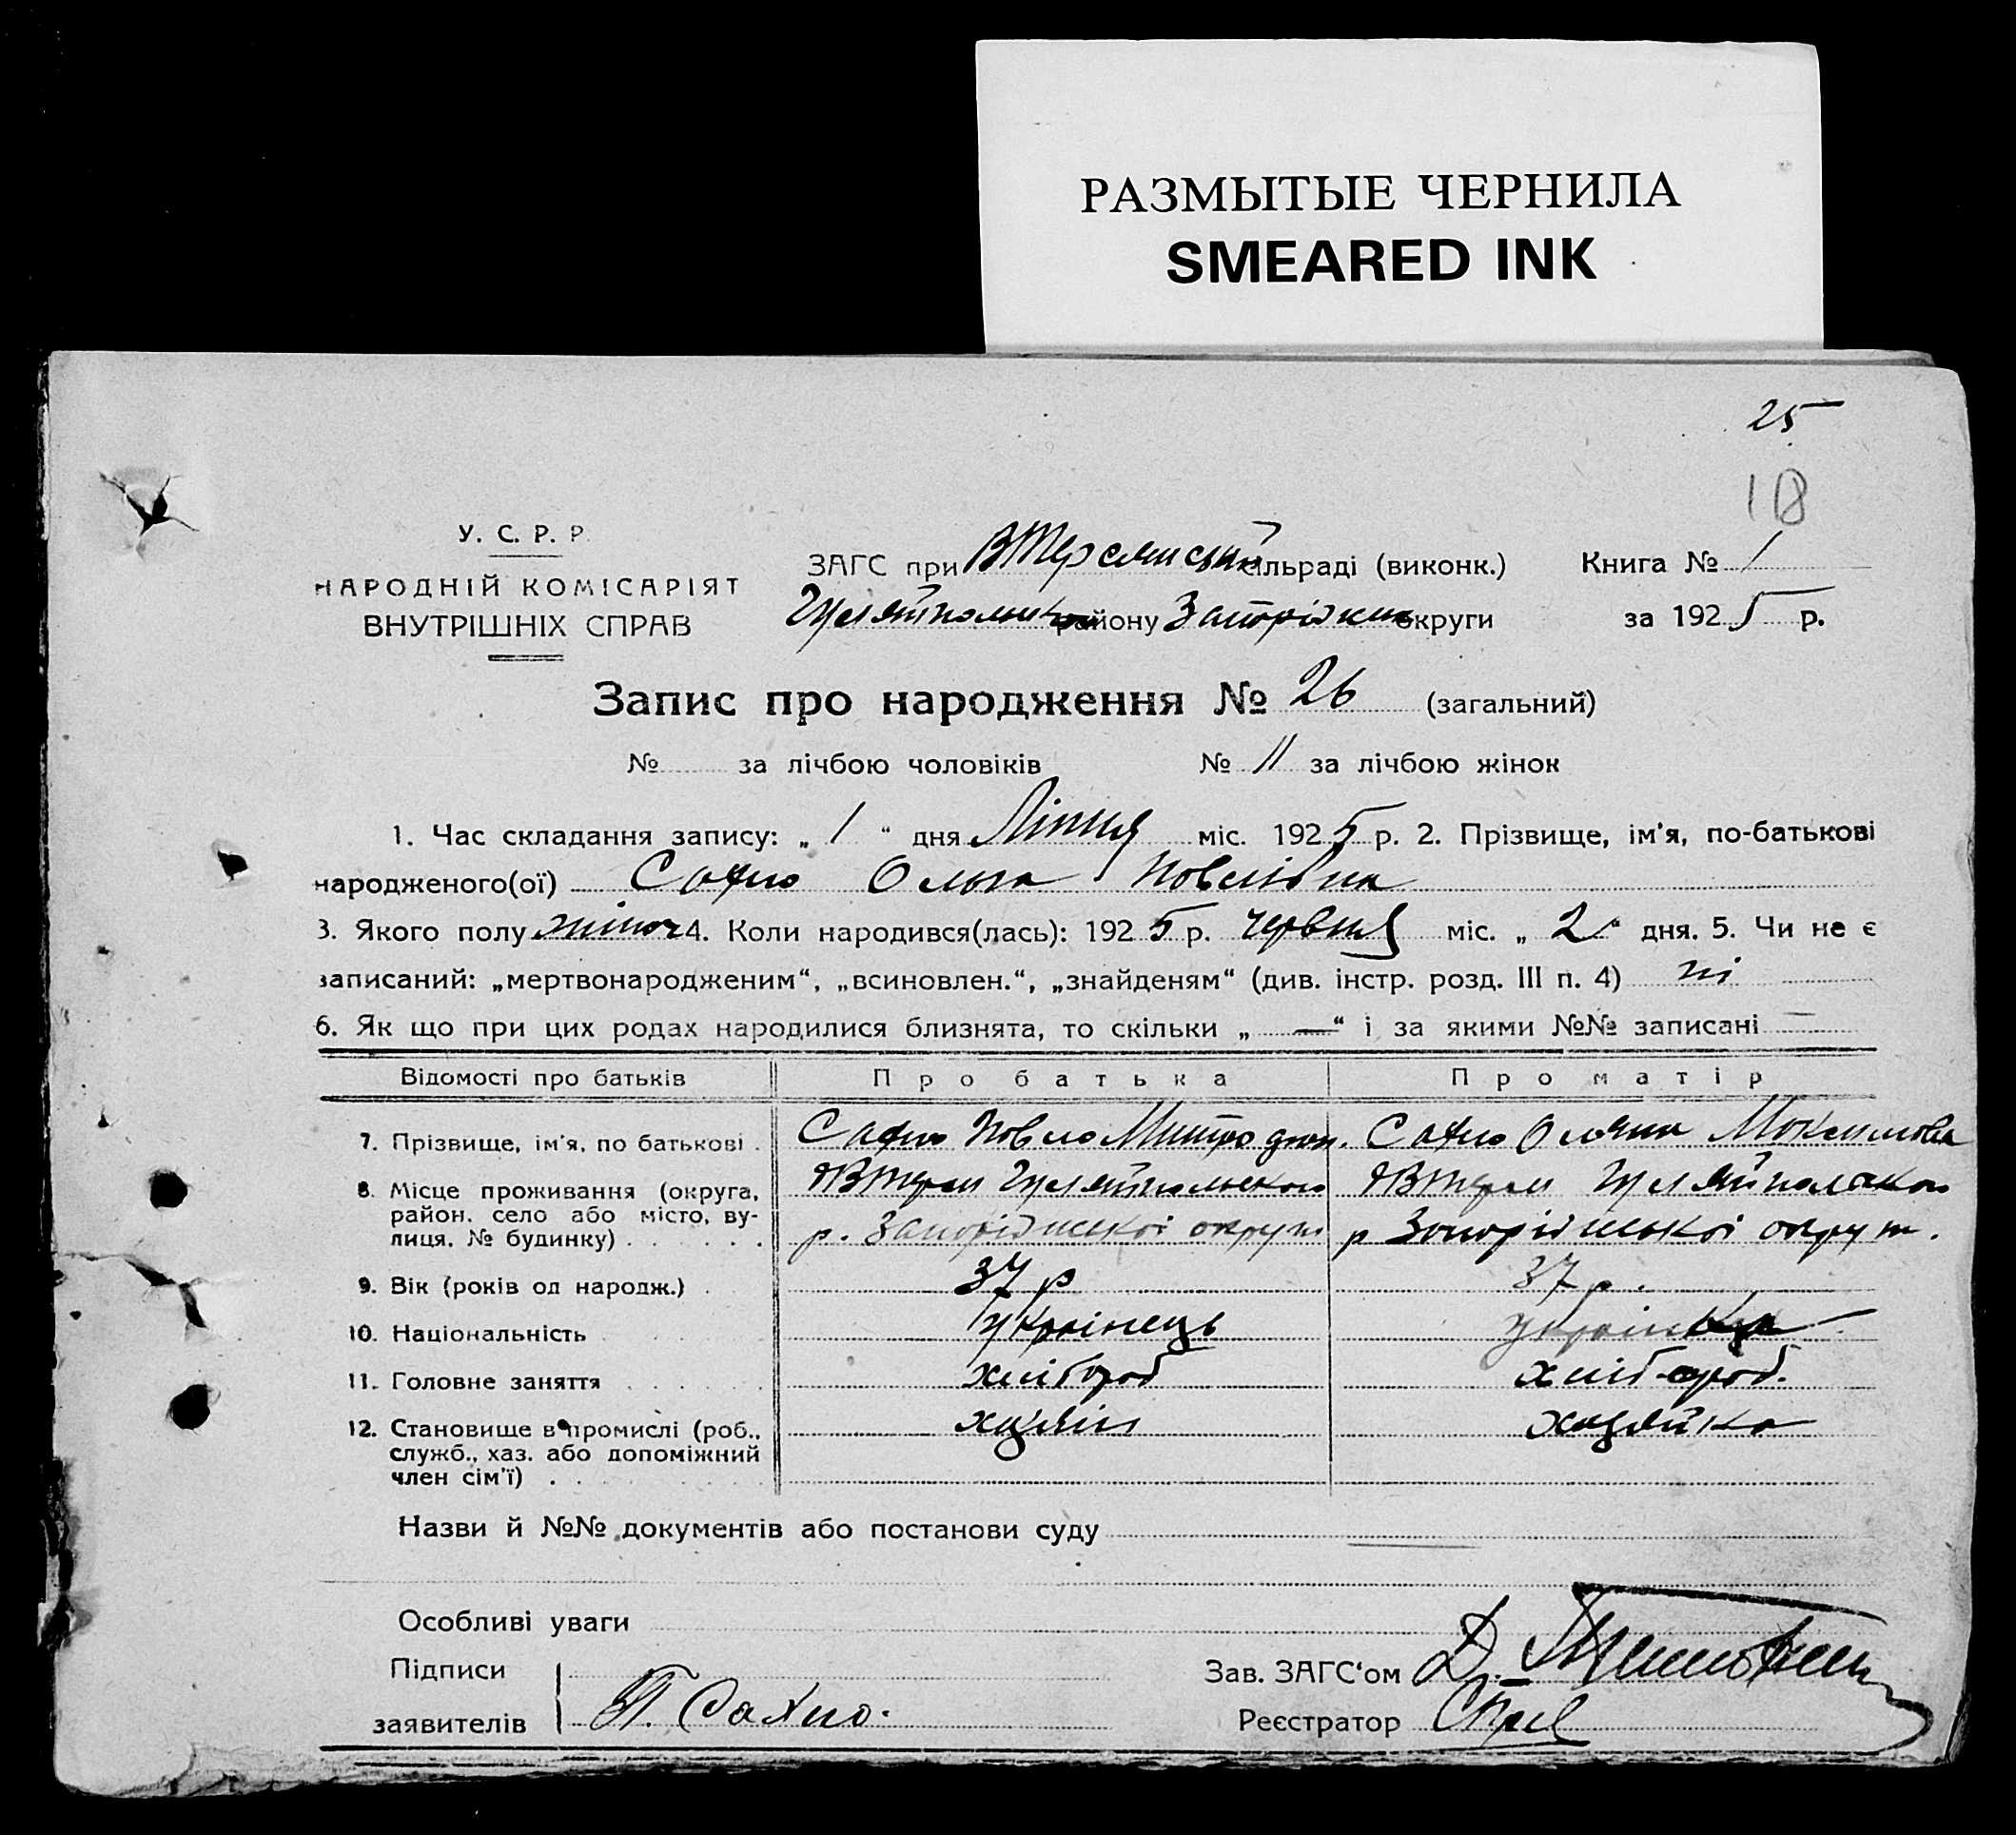 РАЗМЫТЫЕ ЧЕРНИЛА
SMEARED INK
25
У. С. Р. Р.
НАРОДНІЙ КОМІСАРІЯТ
ВНУТРІШНІХ СПРАВ
ЗАГС при ВТерсянській сільраді (виконк.) Книга № 1
Гуляйпольськ району Запоріжськ округи за 1925 р.
Запис про народження № 26 (загальний)
№ за лічбою чоловіків № 11 за лічбою жінок
1. Час складання запису: „ 1 “ дня Липня міс. 1925 р. 2. Прізвище, ім'я, по-батькові
народженого(ої) Сахно Ольга Повлівна
3. Якого полу жіноч 4. Коли народився(лась): 1925 р. червня міс. „ 2 “ дня. 5. Чи не є
записаний: „мертвонародженим“, „всиновлен.“, „знайденям“ (див. інстр. розд. III п. 4) ні
6. Як що при цих родах народилися близнята, то скільки „ — “ і за якими №№ записані —
Відомості про батьків Про батька Про матір
7. Прізвище, ім'я, по батькові . Сахно Повло Митрофан. Сахно Оляна Моксимовна
8. Місце проживання (округа, район, село або місто, вулиця, № будинку) . ВТерси Гуляйпольского ВТерси Гуляйпольского
р. Запоріжської округи р Запоріжської округи.
9. Вік (років од народж.) . 37 р 37 р.
10. Національність українець українка
11. Головне заняття хлібороб хлібороб.
12. Становище в промислі (роб., служб., хаз. або допоміжний член сім'ї) . хазяін хазяйка
Назви й №№ документів або постанови суду
Особливі уваги
Підписи
заявителів П. Сахно.
Зав. ЗАГС'ом Д.
Реєстратор